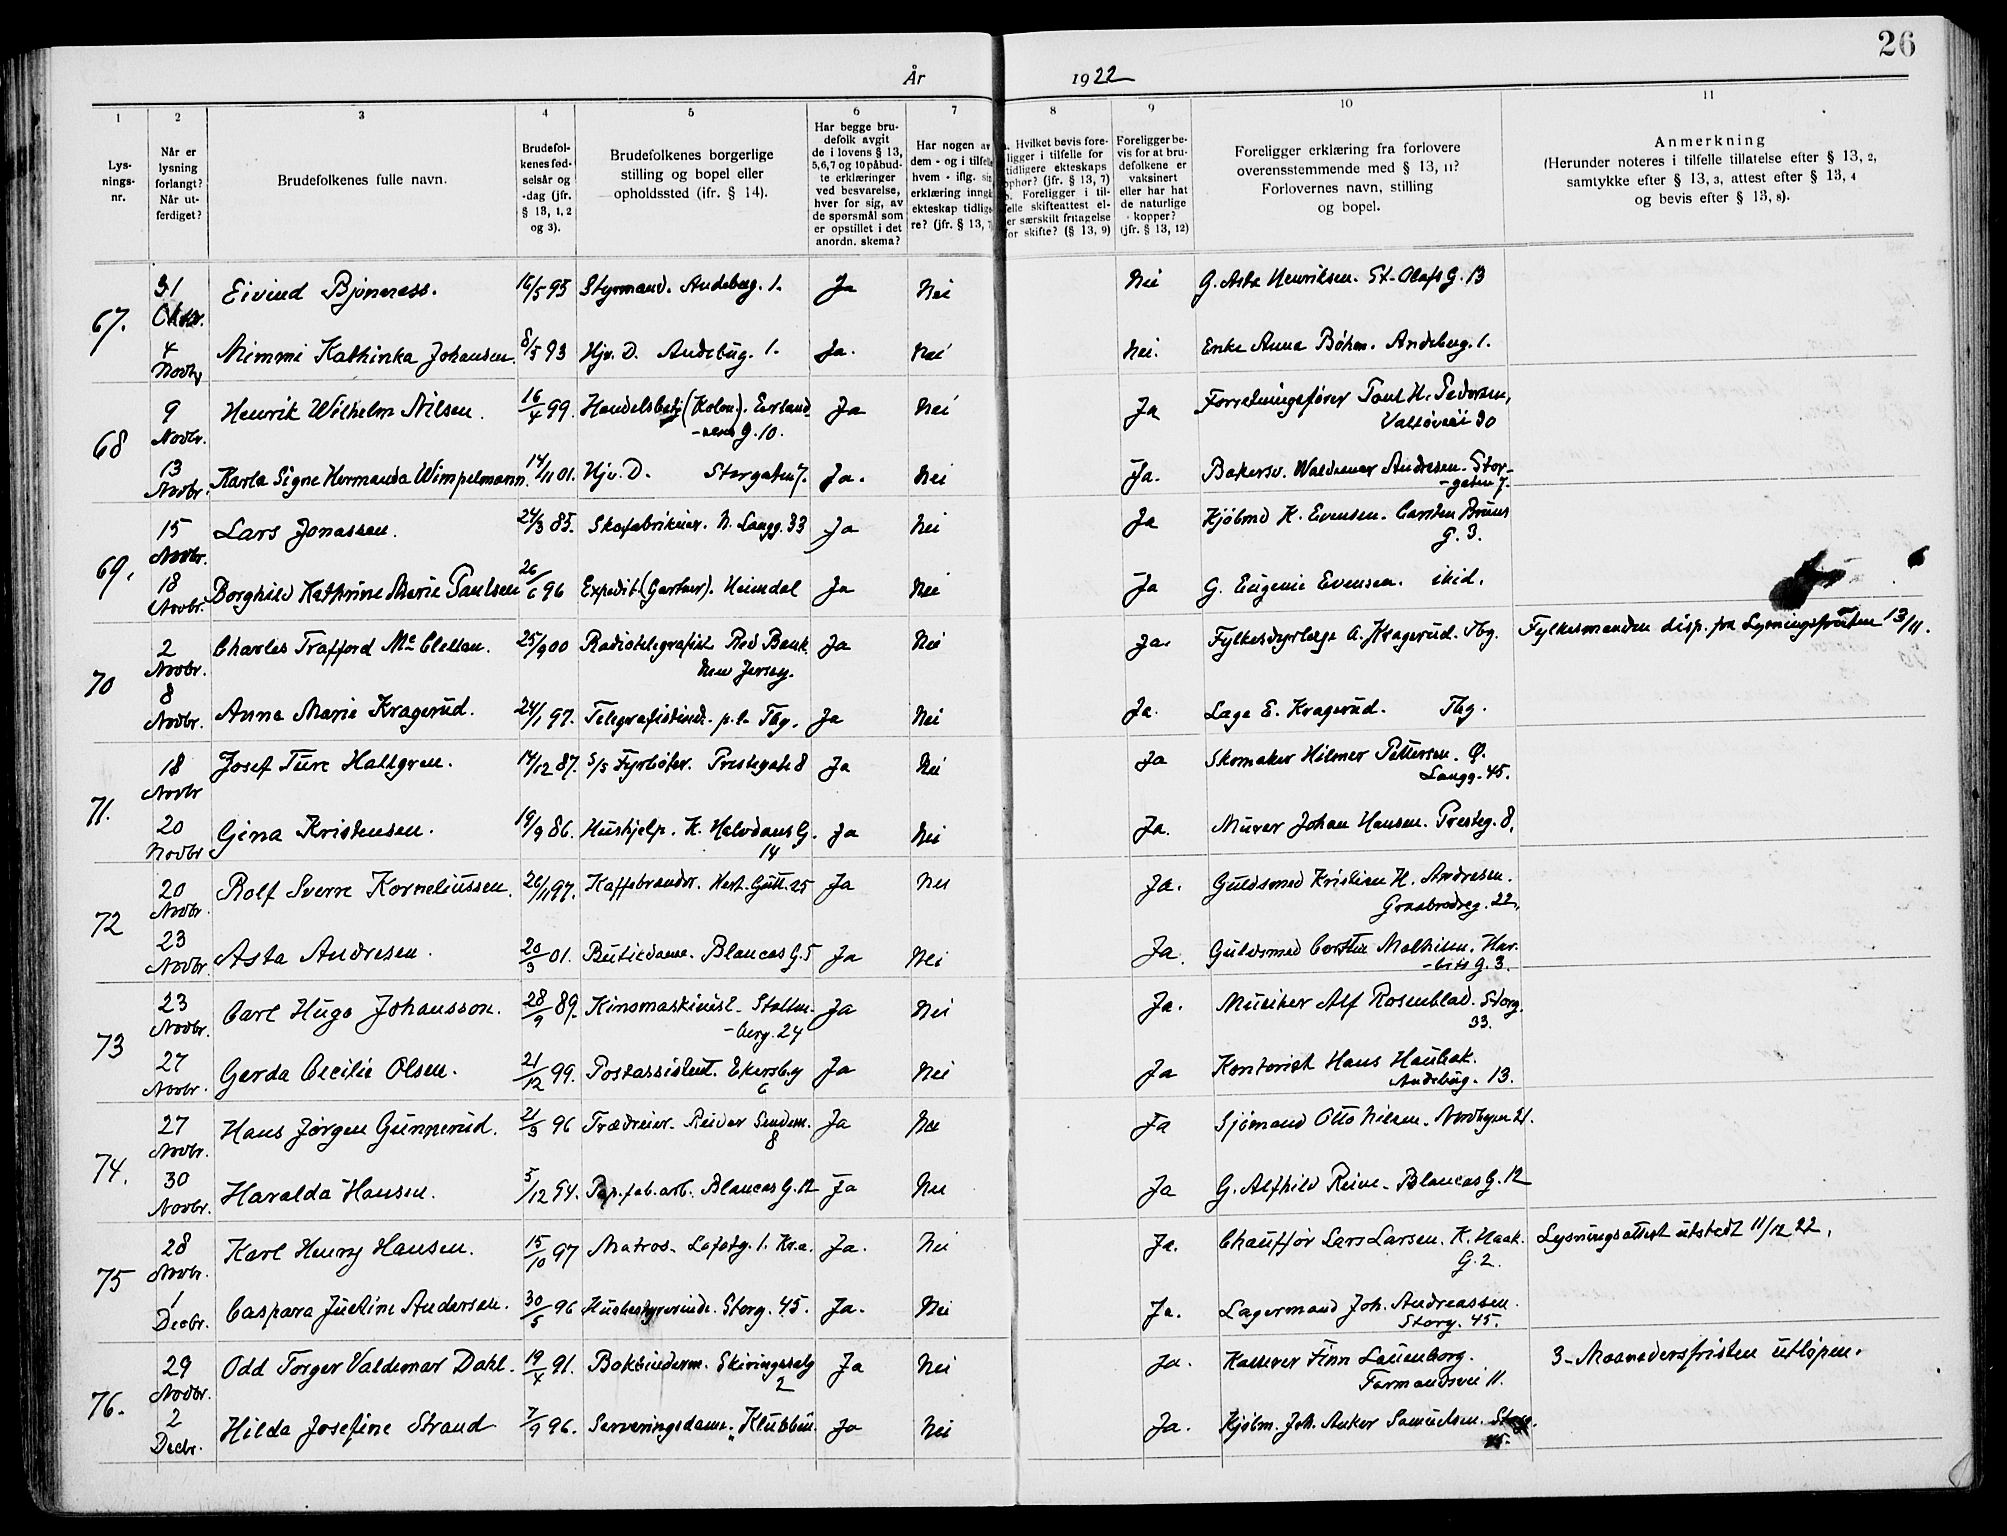 26
År 1922
1 2 3 4 5 6 7 8 9 10 11
Lys-
nings-
nr.
Når er
lysning
forlangt?
Når ut-
ferdiget?
Brudefolkenes fulle navn.
Brudefol-
kenes fød-
selsår og
-dag (jfr.
§ 13, 1, 2
og 3).
Brudefolkenes borgerlige
stilling og bopel eller
opholdssted (ifr. § 14).
Har begge bru-
defolk avgit
de i lovens § 13,
5,6,7 og 10 påbud-
te erklæringer
ved besvarelse,
hver for sig, av
de spørsmål som
er opstillet i det
anordn. skema?
Har nogen av
dem - og i tilfelle
hvem - iflg. sin
erklæring inngå
ekteskap tidlige
re? (jfr. § 13, 7
a. Hvilket bevis fore-
ligger i tilfelle for
tidligere ekteskaps
ophør? (jfr. § 13, 7)
b. Foreligger i til-
felle skifteattest el-
er særskilt fritagelse
for skifte? (§ 13, 9)
Foreligger be-
vis for at bru-
defolkene er
vaksinert
eller har hat
de naturlige
kopper?
(jfr. § 13, 12)
Foreligger erklæring fra forlovere
overensstemmende med § 13, 11?
Forlovernes navn, stilling
og bopel.
Anmerkning
(Herunder noteres i tilfelle tillatelse efter § 13, 2,
samtykke efter § 13, 3, attest efter § 13, 4
og bevis efter § 13, 8).
67. 31 Oktbr. Eivind Bjønness. 16/5 95 Styrmand. Andebug. 1. Ja Nei Nei G. Asta Henriksen. St-Olafs G. 13
4 Novbr Mimmi Kathinka Johansen 8/5 93 Hjv. D. Andebug. 1. Ja. Nei Nei. Enke Anna Bøhm. Andebug. 1.
68 9 Novbr. Henrik Wilhelm Nilsen. 16/4 99. Handelsbetj (Kolon). Erland-
-sens G. 10. Ja Nei Ja Forretningsfører Paul H. Pedersen,
Valløveii 30
13 Novbr. Karla Signe Hermanda Wimpelmann. 14/11 01. Hjv. D. Storgaten 7. Ja. Nei Ja. Bakersv. Waldemar Andresen. Stor-
-gaten 7.
69. 15 Novbr. Lars Jonassen. 24/3 85. Skofabrikeier. N. Langg. 33 Ja Nei Ja Kjøbmd K. Evensen. Carsten Bruns
G. 3.
18 Novbr. Borghild Kathrine Marie Paulsen 26/6 96 Expedit (Gartner). Heimdal Ja Nei Ja G. Eugenie Evensen. ibid.
70 2 Novbr. Charles Trafford Mc Clellan. 25/9 00 Radiotelegrafist Red Bank
New Jersey. Ja Nei Ja. Fylkesdyrlæge A. Kragerud. Tbg. Fylkesmanden disp. fra Lysningsfristen 13/11.
8 Novbr. Anna Marie Kragerud. 24/1 97. Telegrafistinde. p.t. Tbg. Ja Nei Ja. Læge E. Kragerud. Tbg.
71. 18 Novbr Josef Ture Hallgren. 14/12 87. S/S Fyrbøter. Prestegate 8 Ja Nei Ja Skomaker Hilmer Pettersen. Ø.
Langg. 45.
20 Novbr Gina Kristensen. 19/9 86. Hushjelp. K. Halvdans G.
14 Ja Nei Ja. Murer Johan Hansen. Presteg. 8.
72 20 Novbr. Rolf Sverre Korneliussen. 26/11 97. Kaffebrender. Hert. Gutt. 25 Ja Nei Ja. Guldsmed Kristian H. Andresen.
Graabrødreg. 22.
23 Novbr Asta Andresen. 20/3 01. Butikdame. Blancas G. 5 Ja Nei Ja. Guldsmed Carsten Mathisen. Har-
-bits G. 3.
73 23 Novbr. Carl Hugo Johansson. 28/9 89. Kinomaskinist. Stolten-
-berg. 24 Ja Nei Ja. Musiker Alf Rosenblad. Storg.
33.
27 Novbr. Gerda Cecilie Olsen. 21/12 99. Postassistent. Ekersbg
6 Ja Nei Ja Kontorist Hans Haubak.
Andebug. 13.
74. 27 Novbr. Hans Jørgen Gunnerud. 21/3 96 Trædreier. Reidar Sendem.
8 Ja Nei Ja Sjømand Otto Nilsen. Nordbyen 21.
30 Novbr. Haralda Hansen. 5/12 94. Pap. fab. arb. Blancas G. 12 Ja Nei Ja G. Alfhild Reine. Blancas G. 12
75 28 Novbr. Karl Henry Hansen. 15/10 97 Matros. Lofotg. 1. Kr.a. Ja. Nei Ja. Chauffør Lars Larsen. K. Haak.
G. 2. Lysningsattest utstedt 11/12 22.
1 Decbr. Caspara Justine Andersen. 30/5 96 Husbestyrerinde. Storg. 45. Ja. Nei Ja. Lagermand Joh. Andreassen.
Storg. 45.
76. 29 Novbr. Odd Torger Valdemar Dahl. 19/4 91. Bokbinderm. Skiringssalg
2 Ja Nei Ja. Kasserer Finn Lauenborg.
Farmandsvei 11. 3-Maanedersfristen utløpen.
2 Decbr. Hilda Josefine Strand 7/9 96. Serveringsdame. Klubben. Ja Nei Ja. Kjøbm. Joh. Anker Samuelsen.